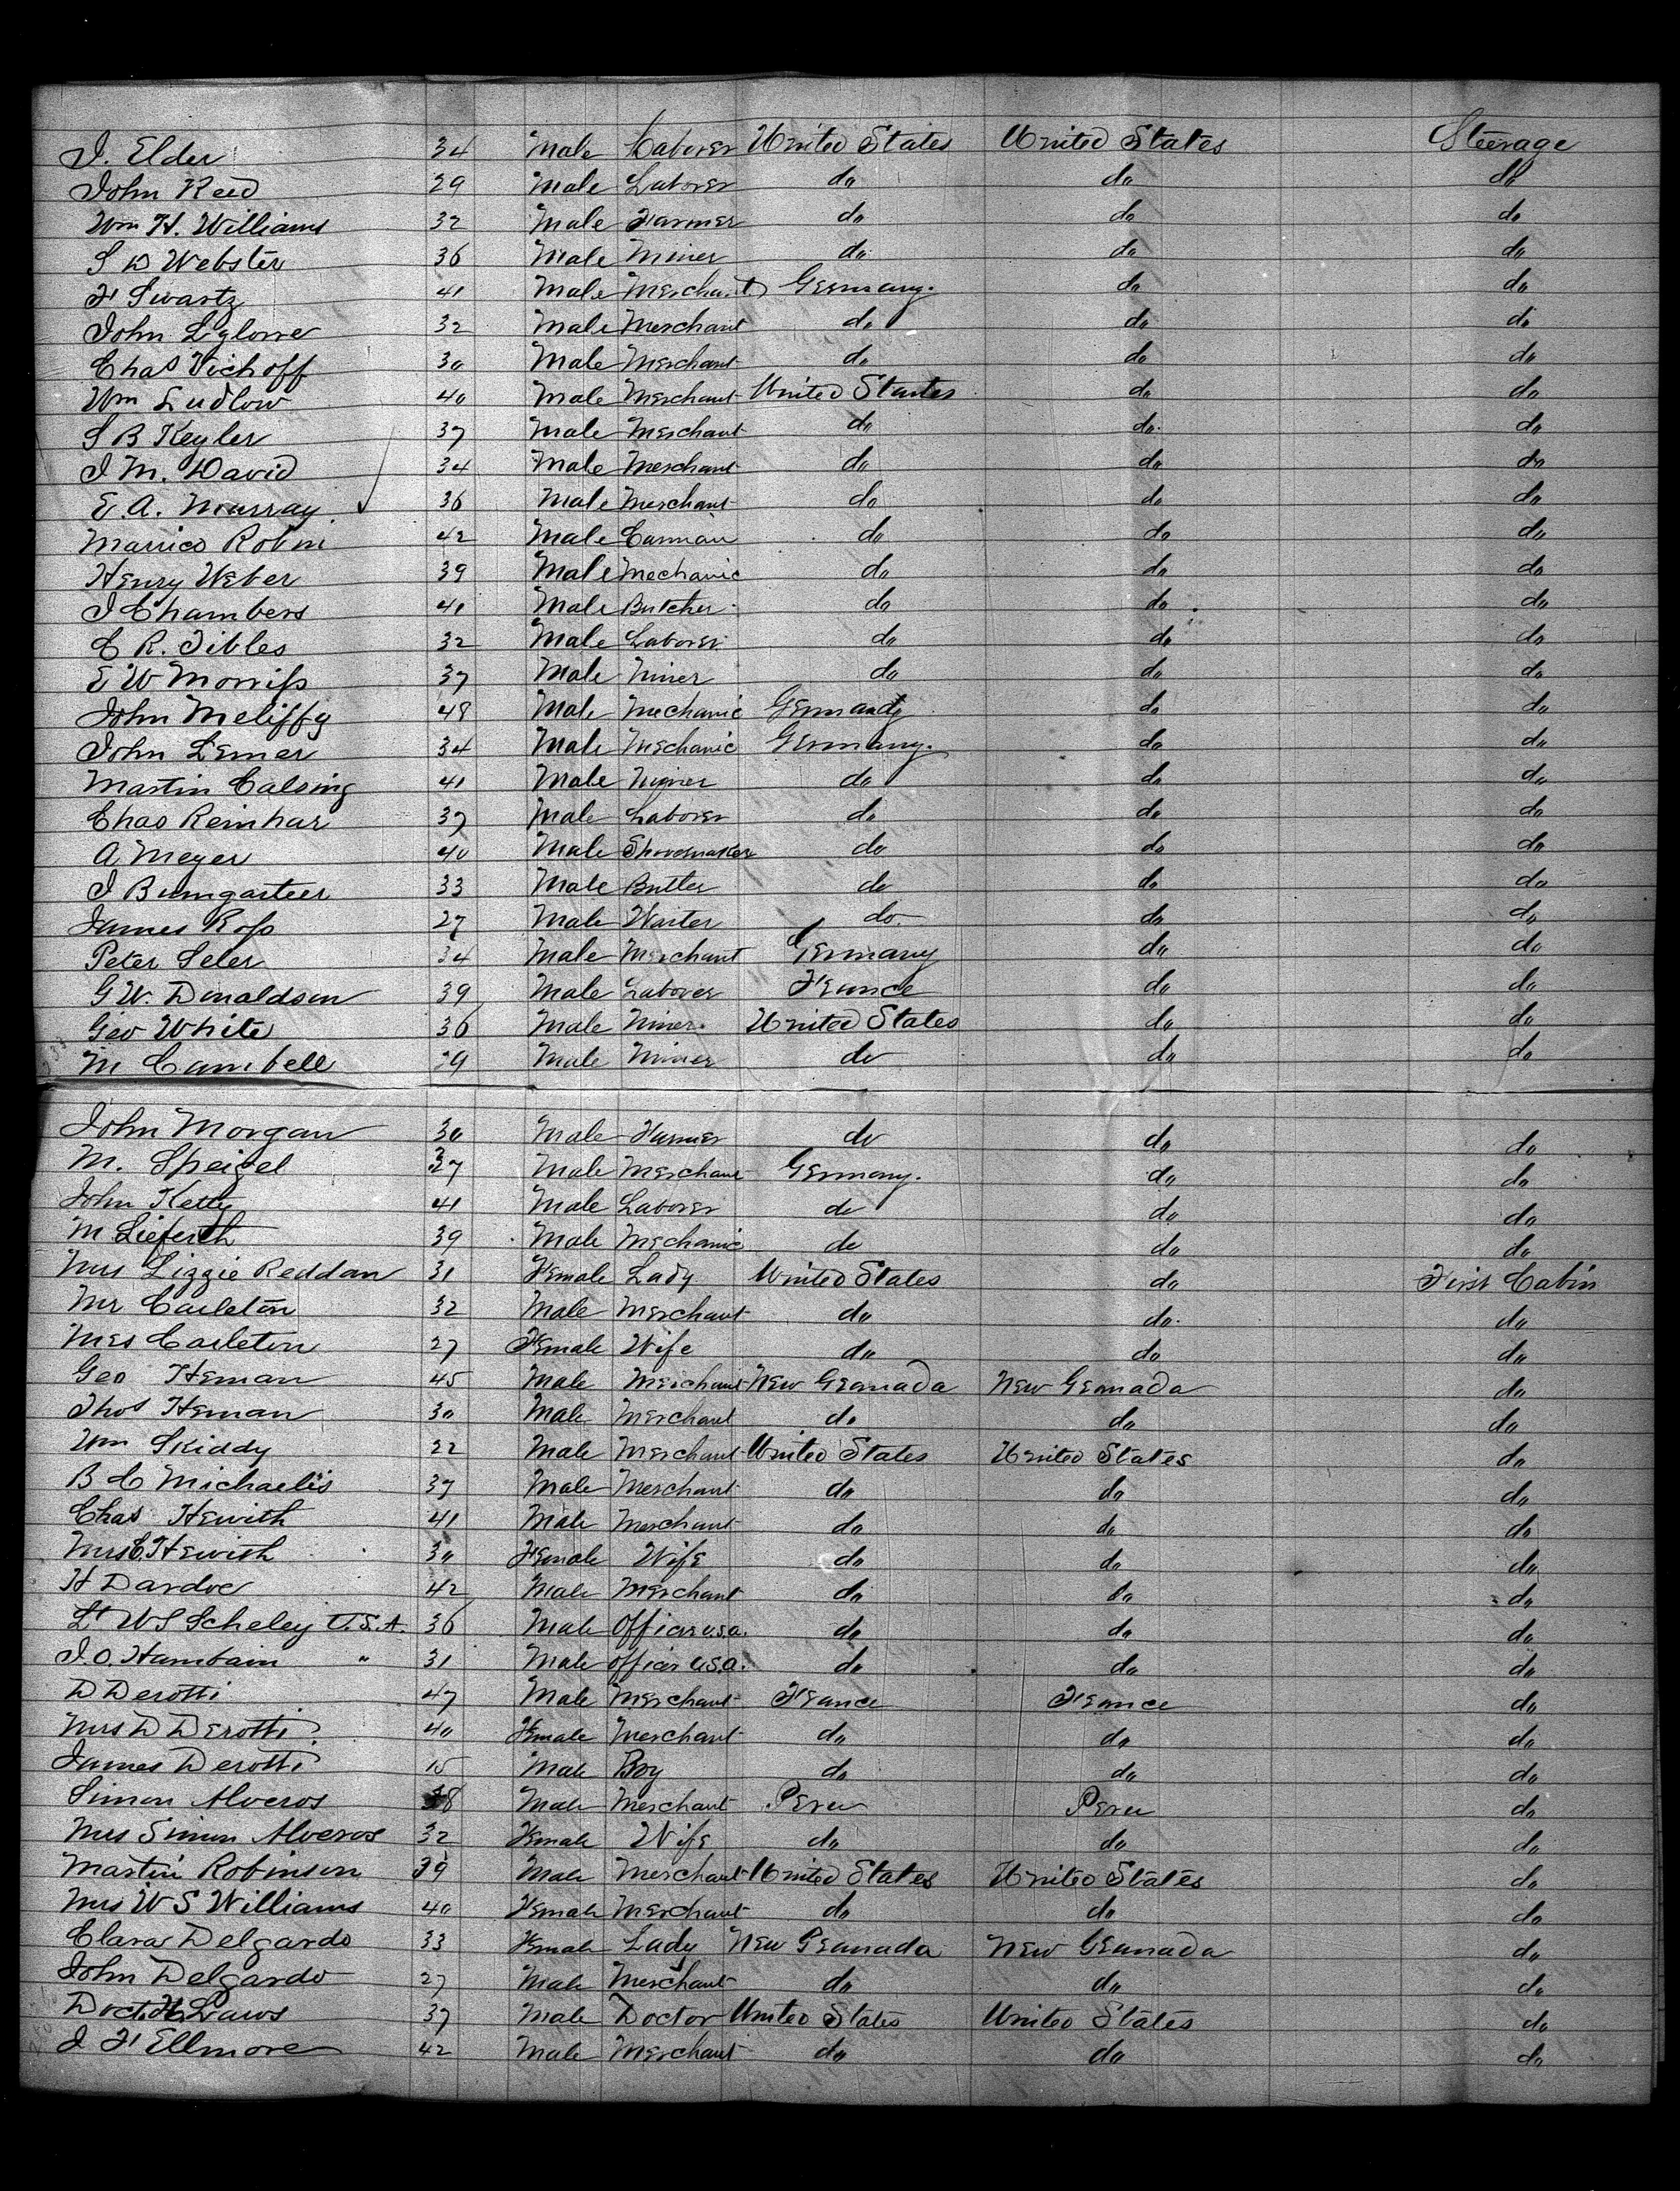 J. Elder 34 Male Laborer United States United States Steerage
John Reed 29 Male Laborer do do do
Wm H. Williams 32 Male Farmer do do do
S D Webster 36 Male Miner do do do
F Swartz 41 Male Merchant Germany. do do
John 32 Male Merchant do do do
Chas Vichoff 30 Male Merchant do do do
Wm Ludlow 40 Male Merchant United States do do
S B Keyler 37 Male Merchant do do do
J M. David 34 Male Merchant do do do
E. A. Murray 36 Male Merchant do do do
Marrico Robin 42 Male Carman do do do
Henry Weber 39 Male Mechanic do do do
J Chambers 41 Male Butcher do do do
C R. Tibles 32 Male Laborer do do do
E W Morriss 37 Male Miner do do do
John Meliffy 48 Male Mechanic Germany do do
John Lemer 34 Male Mechanic Germany. do do
Martin Calsing 41 Male Miner do do do
Chas Reinhar 37 Male Laborer do do do
A Meyer 40 Male Shoemaker do do do
J Bumgarteer 33 Male Butler do do do
James Ross 27 Male Waiter do do do
Peter Seler 34 Male Merchant Germany do do
G W. Donaldson 39 Male Laborer France do do
Geo White 36 Male Miner United States do do
M Cambell 29 Male Miner do do do
John Morgan 30 Male Farmer do do do
M. Speigel 27 Male Merchant Germany. do do
John Ketty 41 Male Laborer do do do
M Lieferth 39 Male Mechanic do do do
Mrs Lizzie Reddan 31 Female Lady United States do First Cabin
Mr Carleton 32 Male Merchant do do do
Mrs Carleton 27 Female Wife do do do
Geo Heman 45 Male Merchant New Granada New Granada do
Thos Heman 30 Male Merchant do do do
Wm Skiddy 22 Male Merchant United States United States do
B C Michaelis 37 Male Merchant do do do
Chas Hewith 41 Male Merchant do do do
Mrs C. Hewith 30 Female Wife do do do
H Dardoe 42 Male Merchant do do do
Lt W S Scheley U.S.A. 36 Male Officer U.S.A. do do do
J. O. Hambain " 31 Male Officer U.S.A. do do do
D Derotti 47 Male Merchant France France do
Mrs D Derotti 40 Female Merchant do do do
James Derotti 15 Male Boy do do do
Simon Alveros 38 Male Merchant Peru Peru do
Mrs Simon Alveros 32 Female Wife do do do
Martin Robinson 39 Male Merchant United States United States do
Mrs W S Williams 40 Female Merchant do do do
Clara Delgardo 33 Female Lady New Granada New Granada do
John Delgardo 27 Male Merchant do do do
Doct. H Laws 37 Male Doctor United States United States do
J F Ellmore 42 Male Merchant do do do